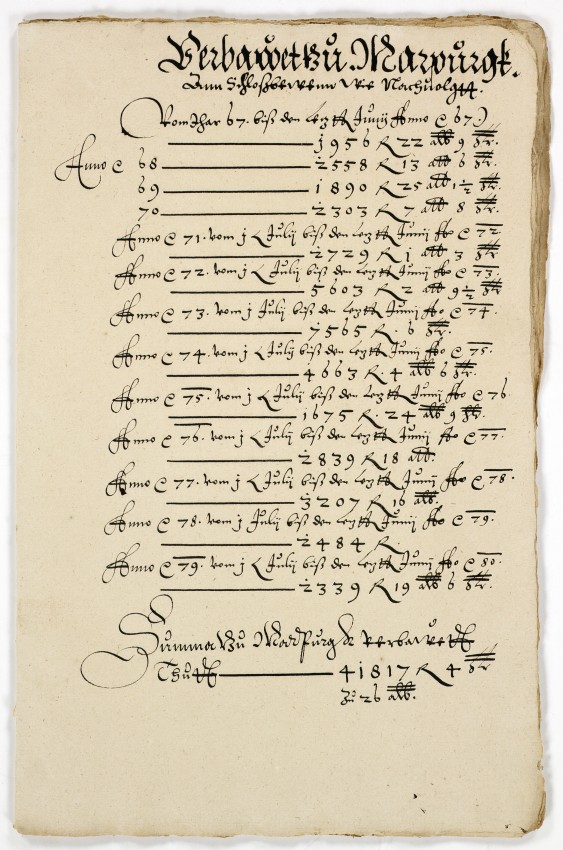 Verbawet zu Marpurgk.
Ann Schloßbewenn wie Nachuolgtt.
Vom Jhar 67. biß den letztt Junij Anno ꝛc 67.
1956 fl 22 alb 9 hlr.
Anno ꝛc 68 2558 fl 13 alb 6 hlr.
69 1890 fl 25 alb 1½ hlr.
70 2303 fl 7 alb 8 hlr.
Anno ꝛc 71. vom j Julij biß den letztt Junij Ao ꝛc 72.
2729 fl 1 alb 3 hlr
Anno ꝛc 72. vom j Julij biß den letztt Junij Ao ꝛc 73.
5603 fl 2 alb 9½ hlr
Anno ꝛc 73. vom j Julij biß den letztt Junij Ao ꝛc 74.
7565 fl. 6 hlr.
Anno ꝛc 74. vom j Julij biß den letztt Junij Ao ꝛc 75.
4663 fl. 4 alb 6 hlr.
Anno ꝛc 75. vom j Julij biß den letztt Junij Ao ꝛc 76
1675 fl. 24 alb 9 hlr.
Anno ꝛc 76. vom j Julij biß den letztt Junij Ao ꝛc 77.
2839 fl 18 alb.
Anno ꝛc 77. vom j Julij biß den letztt Junij Ao ꝛc 78.
3207 fl 16 alb.
Anno ꝛc 78. vom j Julij biß den letztt Junij Ao ꝛc 79.
2484 fl.
Anno ꝛc 79. vom j Julij biß den letztt Junij Ao ꝛc 80.
2339 fl 19 alb 6 hlr.
Summa zu Marpurgk verbawett
Thutt 41817 fl 4 hlr
zu 26 alb.